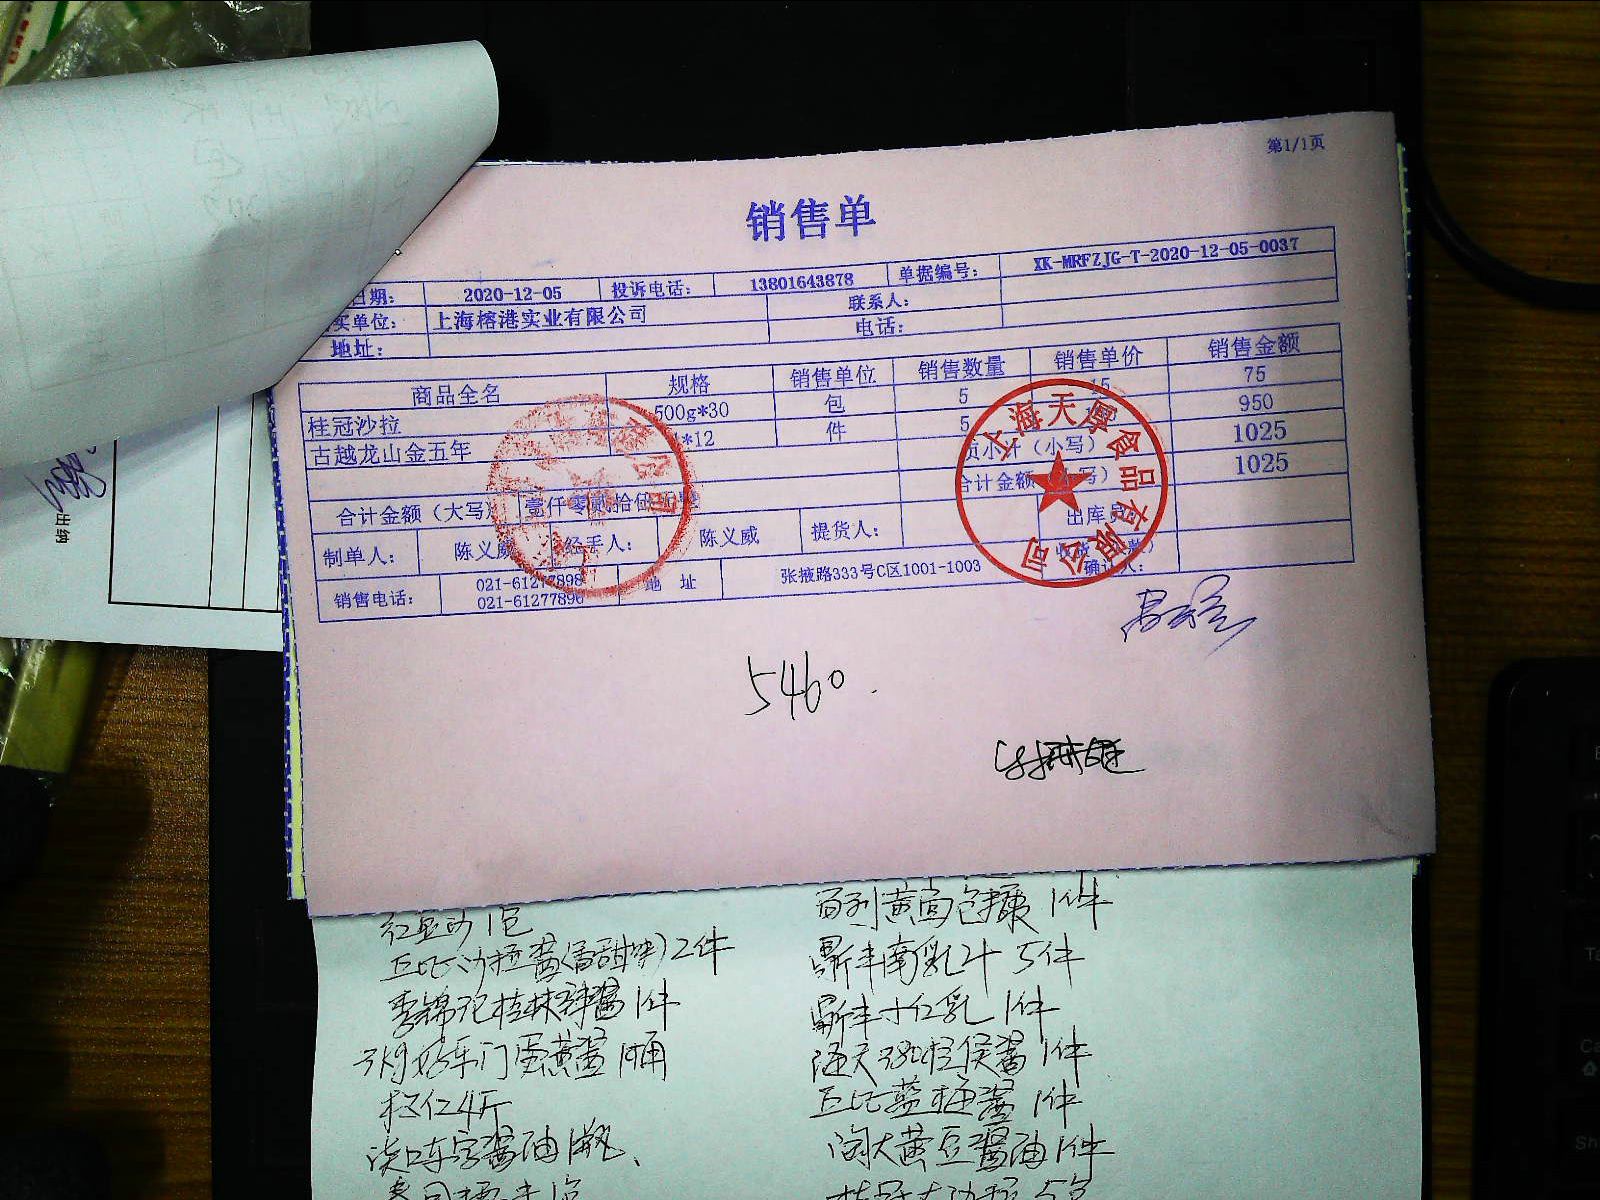 第1/1页
销售单
日期： 2020-12-05 投诉电话： 13801643878 单据编号： XK-MRFZJG-T-2020-12-05-0037
买单位： 上海榕港实业有限公司 联系人：
地址： 电话：
商品全名 规格 销售单位 销售数量 销售单价 销售金额
桂冠沙拉 500g*30 包 5 15 75
古越龙山金五年 *12 件 5 950
页小计（小写） 1025
合计金额（大写） 壹仟零贰拾伍 合计金额（小写） 1025
制单人： 陈义威 经手人： 陈义威 提货人： 出库员：
销售电话： 021-61277898 地 址 张掖路333号C区1001-1003 确认人：
021-61277896
上海天厚食品有限公司
出纳
5460.
红豆沙1包
丘比沙拉酱(香甜味)2件
李锦记桂林辣酱1件
蛋黄酱1桶
仁4斤
淡口字酱油1瓶、
黄面包糠1件
鼎丰南乳汁5件
鼎丰 红乳1件
海天380 柱侯酱1件
丘比蓝莓酱1件
淘大黄豆酱油1件